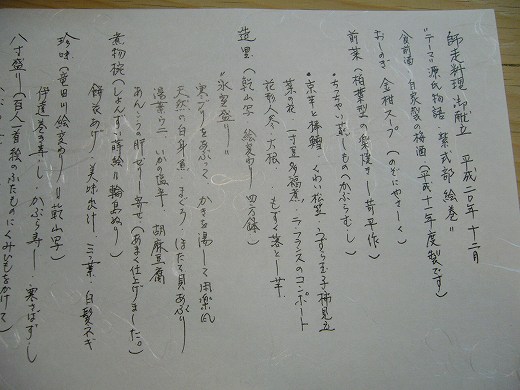 師走料理 御献立 平成二〇年 十二月
"テーマ" 源氏物語 紫式部 絵巻"
食前酒 自家製の梅酒（平成十二年度製です）
おしのぎ 金柑スプ （のどにやさしーく）
前菜（柏葉型の楽焼き 苛平作）
・ちっちゃい蒸しもの（かぶらむし）
・京芋と棒鱈 くわい松笠・うずら玉子柿見立
菜の花 一寸豆多福煮・ラ・フランスのコンポート
花形人参・大根 ・もずく落とし芋
造里（乾山写 絵変わり 四方鉢）
"氷室盛り"
寒ぶりをあぶって かきを湯して
天然の白身魚 まぐろ ほたて貝のあぶり
湯葉ウニ いかの塩辛 胡麻豆腐
あんこうの肝ゼリー寄せ（あまく仕上げました。）
煮物椀（しょんずい蒔絵 輪島ぬり）
餅花あげ・美味出汁 ・三つ葉・白髪ネギ
珍味（竜田川絵変わり 乾山写）
伊達巻き寿し かぶら寿し・寒さばずし
八寸盛り（百人一首絵のふたものにくみいもをかけて）